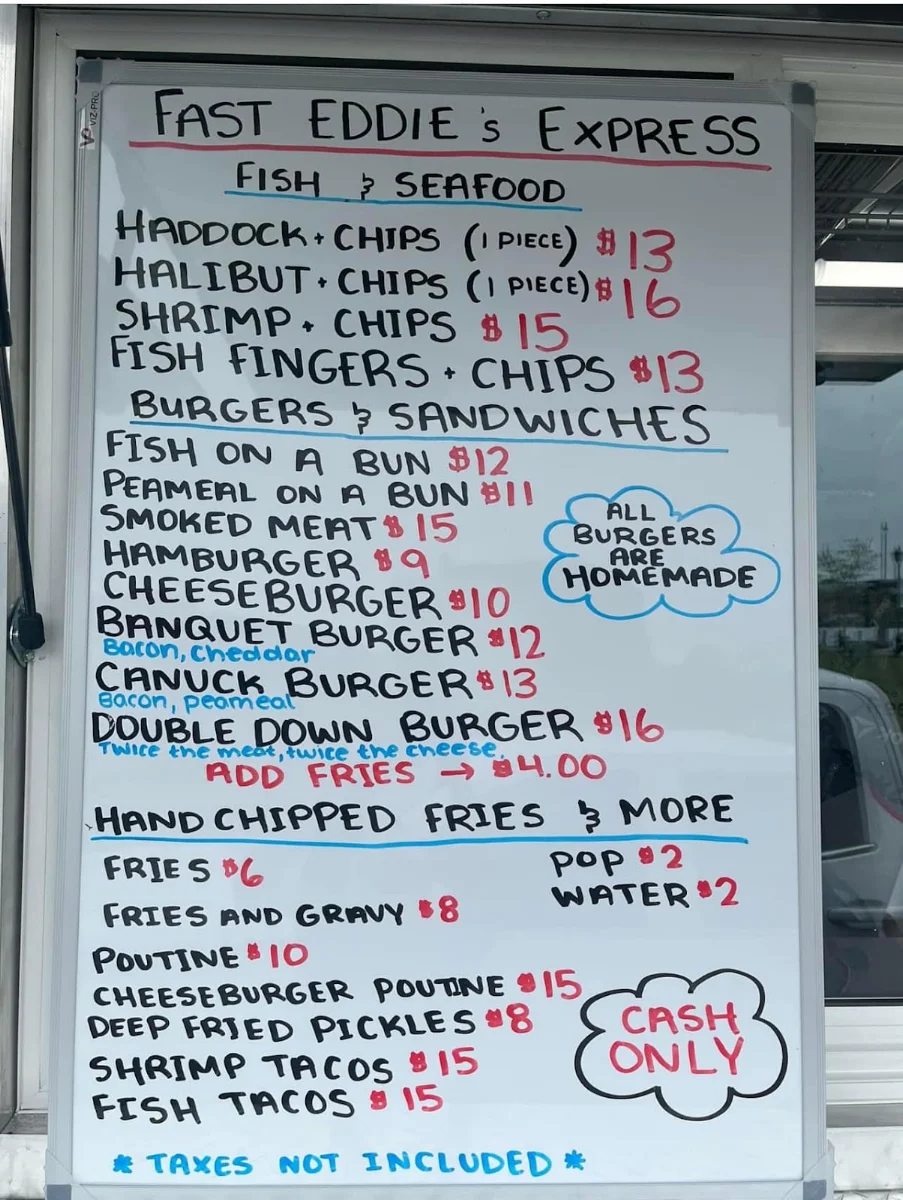 VIZ-PRO
FAST EDDIE's EXPRESS
FISH & SEAFOOD
HADDOCK + CHIPS (1 PIECE) $13
HALIBUT + CHIPS (1 PIECE) $16
SHRIMP + CHIPS $15
FISH FINGERS + CHIPS $13
BURGERS & SANDWICHES
FISH ON A BUN $12
PEAMEAL ON A BUN $11
SMOKED MEAT $15
HAMBURGER $9
CHEESEBURGER $10
BANQUET BURGER $12
Bacon, cheddar
CANUCK BURGER $13
Bacon, peameal
DOUBLE DOWN BURGER $16
Twice the meat, twice the cheese.
ADD FRIES → $4.00
ALL
BURGERS
ARE
HOMEMADE
HAND CHIPPED FRIES & MORE
FRIES $6
FRIES AND GRAVY $8
POUTINE $10
CHEESEBURGER POUTINE $15
DEEP FRIED PICKLES $8
SHRIMP TACOS $15
FISH TACOS $15
POP $2
WATER $2
CASH
ONLY
* TAXES NOT INCLUDED *